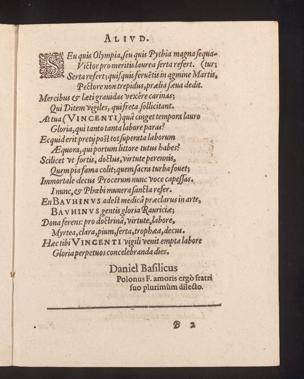 ALIVD.
SEu quis Olympia, seu quis Pythia magna sequa-
Victor pro meritis laurea serta refert. (tur;
Serta refert; quisquis feruētis in agmine Martis,
Pectore non trepidus, prælia sæua dedit.
Mercibus & læti grauidas vexêre carinas;
Qui Ditem vigiles, qui freta sollicitant.
At tua (VINCENTI) quâ cinget tempora lauro
Gloria, qui tanto tanta labore paras?
Ecquid erit pretij post tā superata laborum
Æquora, qui portum littore tutus habes?
Scilicet vt fortis, doctus, virtute perennis,
Quem pia fama colit; quem sacra turba fouet;
Immortale decus Procerum nunc voce capessas.
I nunc, & Phœbi munera sancta refer.
En BAVHINVS adest medicâ præclarus in arte,
BAVHINVS gentis gloria Rauriciæ;
Dona ferens: pro doctrinâ, virtute, labore,
Myrtea, clara, pium, serta, trophæa, decus.
Hæc tibi VINCENTI vigili venit empta labore
Gloria perpetuos concelebranda dies.
Daniel Basilicus
Polonus F. amoris ergò fratri
suo plurimùm dilecto.
B 2